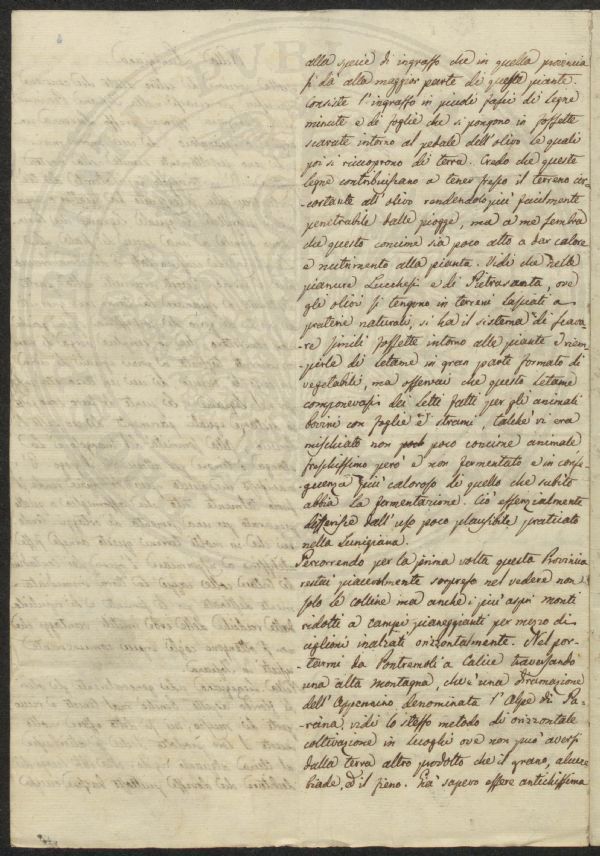 alla specie di ingrasso che in quella provincia
si dà alla maggior parte di queste piante.
Consiste l'ingrasso in piccoli fasci di legne
minute e di foglie che si pongono in fossette
scavate intorno al pedale dell'olivo le quali
poi si ricuoprono di terra. Credo che queste
legne contribuischano a tener fresco il terreno cir-
-costante all'olivo rendendolo più facilmente
penetrabile dalle piogge, ma a me sembra
che questo concime sia poco atto a dar calore
e nutrimento alla pianta. Vidi che nelle
pianure Lucchesi e di Pietrasanta, ove
gli olivi si tengono in terreni lasciati a
praterie naturali, si ha il sistema di scava-
-re simili fossette intorno alle piante e riem-
-pirle di letame in gran parte formato di
vegetabili, ma osservai che questo letame
componevasi dei letti fatti per gli animali
bovini con foglie e strami, talchè vi era
mischiato non poco concime animale
freschissimo però e non fermentato e in conse-
-guenza più caloroso di quello che subito
abbia la fermentazione. Ciò essenzialmente
differisce dall'uso poco plausibile praticato
nella Lunigiana.
Percorrendo per la prima volta questa Provincia
restai piacevolmente sorpreso nel vedere non
solo le colline ma anche i più aspri monti
ridotti a campi pianeggianti per mezzo di
ciglioni inalzati orizzontalmente. Nel por-
tarmi da Pontremoli a Calice traversando
una alta montagna, che è una diramazione
dell'Appennino denominata l'Alpe di
vidi lo stesso metodo di orizzontale
coltivazione in luoghi ove non può aversi
dalla terra altro prodotto che il grano, alcune
biade, ed il fieno. Già sapevo essere antichissima